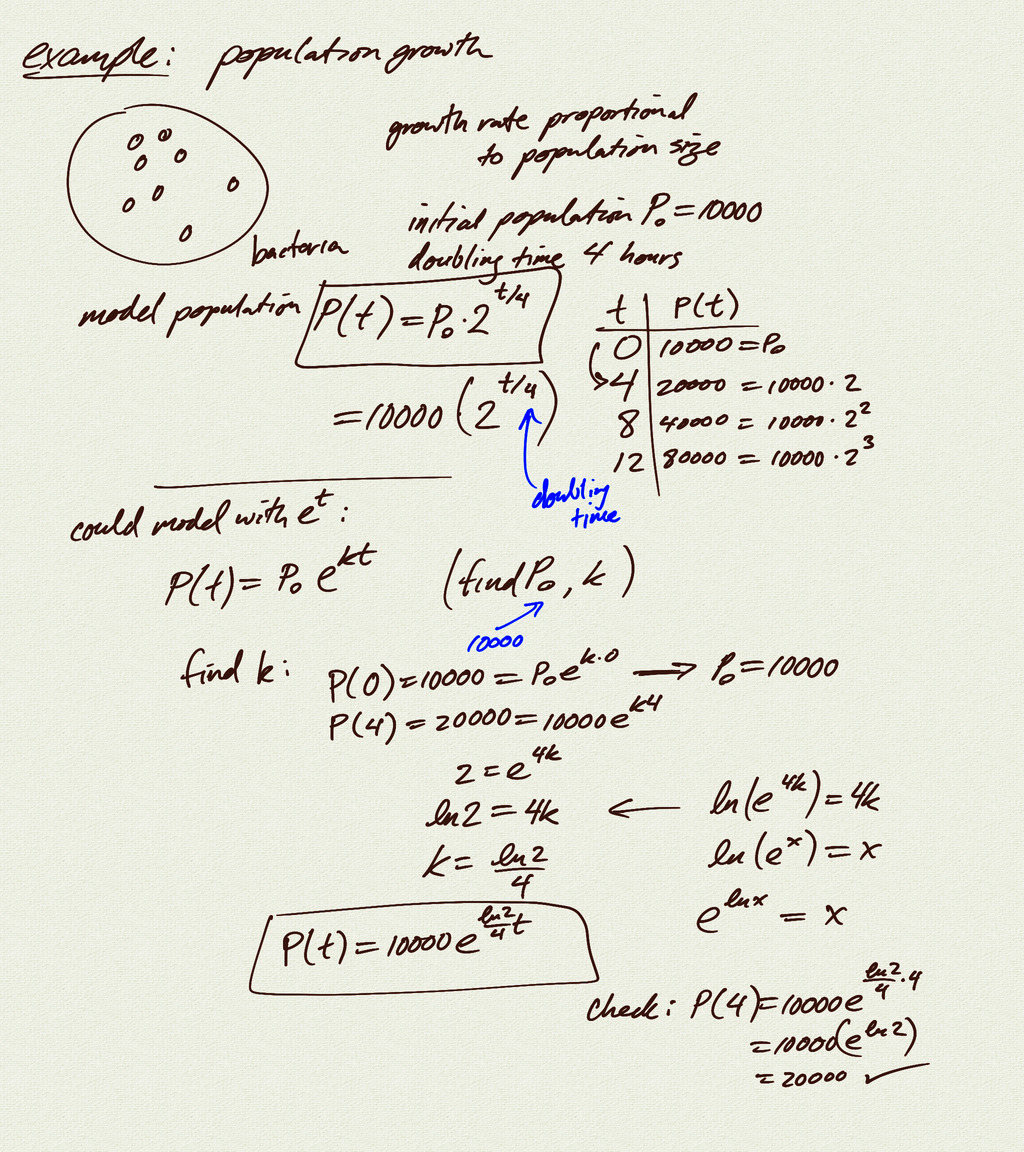 example: population growth
growth rate proportional
to population size
initial population P₀ = 10000
bacteria
doubling time 4 hours
model population P(t) = P₀·2^(t/4)
= 10000 (2^(t/4))
doubling
time
t | P(t)
0 | 10000 = P₀
4 | 20000 = 10000·2
8 | 40000 = 10000·2²
12 | 80000 = 10000·2³
could model with e^t:
P(t) = P₀ e^(kt) (find P₀, k)
10000
find k: P(0) = 10000 = P₀e^(k·0) → P₀ = 10000
P(4) = 20000 = 10000e^(k4)
2 = e^(4k)
ln2 = 4k ← ln(e^(4k)) = 4k
k = ln2/4
ln(e^x) = x
e^(lnx) = x
P(t) = 10000e^((ln2/4)t)
check: P(4) = 10000e^((ln2/4)·4)
= 10000(e^(ln2))
= 20000 ✓